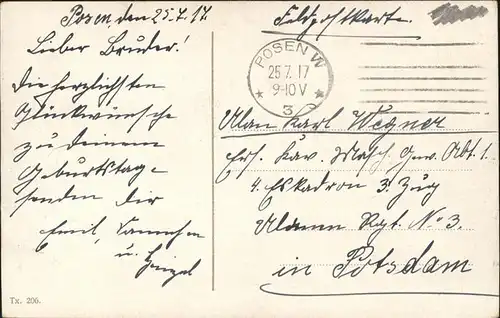 Posen, den 25.7.17.
Lieber Bruder!
Die herzlichsten
Glückwünsche
zu deinem
Geburtstage
senden dir
Emil,
u.
Tx. 206.
Feldpostkarte.
POSEN W
25.7.17
9-10 V
* 3 *
Ulan Karl Wegner
Ers. Kav. Masch. Gew. Abt. 1.
4. Eskadron 3. Zug
Ulanen Rgt. No 3.
in Potsdam